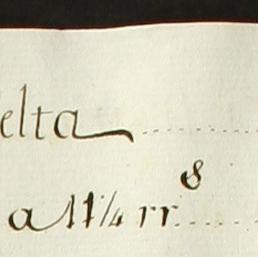 elta
a 11 1/4 rr. 8